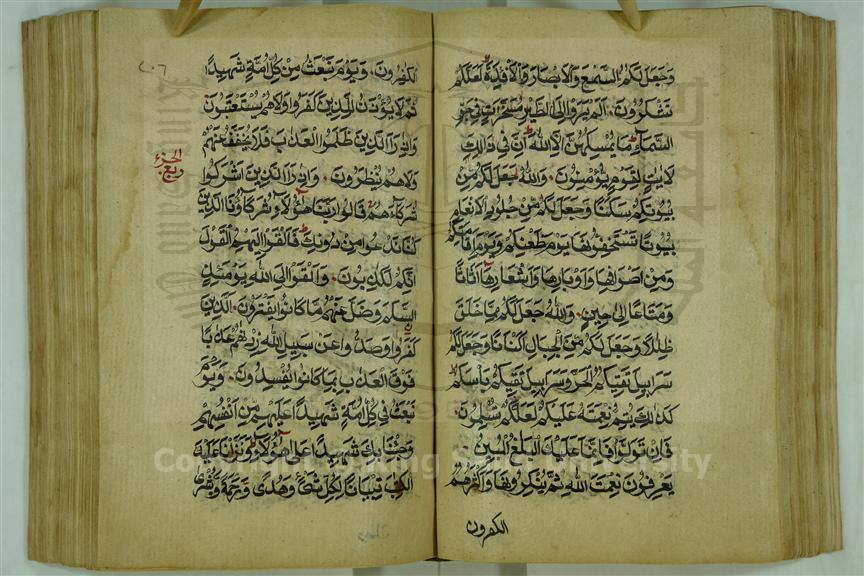 وَجَعَلَ لَكُمُ السَّمْعَ وَالْاَبْصَارَ وَالْاَفْئِدَةَ لَعَلَّكُمْ
تَشْكُرُونَ اَلَمْ يَرَوْا اِلَى الطَّيْرِ مُسَخَّرَاتٍ فِي جَوِّ
السَّمَآءِ مَا يُمْسِكُهُنَّ اِلَّا اللّٰهُ اِنَّ فِي ذٰلِكَ
لَاٰيَاتٍ لِقَوْمٍ يُؤْمِنُونَ وَاللّٰهُ جَعَلَ لَكُمْ مِنْ
بُيُوتِكُمْ سَكَنًا وَجَعَلَ لَكُمْ مِنْ جُلُودِ الْاَنْعَامِ
بُيُوتًا تَسْتَخِفُّونَهَا يَوْمَ ظَعْنِكُمْ وَيَوْمَ اِقَامَتِكُمْ
وَمِنْ اَصْوَافِهَا وَاَوْبَارِهَا وَاَشْعَارِهَا اَثَاثًا
وَمَتَاعًا اِلٰى حِينٍ وَاللّٰهُ جَعَلَ لَكُمْ مِمَّا خَلَقَ
ظِلٰلًا وَجَعَلَ لَكُمْ مِنَ الْجِبَالِ اَكْنَانًا وَجَعَلَ لَكُمْ
سَرَابِيلَ تَقِيكُمُ الْحَرَّ وَسَرَابِيلَ تَقِيكُمْ بَأْسَكُمْ
كَذٰلِكَ يُتِمُّ نِعْمَتَهُ عَلَيْكُمْ لَعَلَّكُمْ تُسْلِمُونَ
فَاِنْ تَوَلَّوْا فَاِنَّمَا عَلَيْكَ الْبَلٰغُ الْمُبِينُ
يَعْرِفُونَ نِعْمَتَ اللّٰهِ ثُمَّ يُنْكِرُونَهَا وَاَكْثَرُهُمُ
الكفرون
٢٠٦
الْكٰفِرُونَ وَيَوْمَ نَبْعَثُ مِنْ كُلِّ اُمَّةٍ شَهِيدًا
ثُمَّ لَا يُؤْذَنُ لِلَّذِينَ كَفَرُوا وَلَا هُمْ يُسْتَعْتَبُونَ
وَاِذَا رَاَ الَّذِينَ ظَلَمُوا الْعَذَابَ فَلَا يُخَفَّفُ عَنْهُمْ
وَلَا هُمْ يُنْظَرُونَ وَاِذَا رَاَ الَّذِينَ اَشْرَكُوا
الجزء
ربع
شُرَكَآءَهُمْ قَالُوا رَبَّنَا هٰٓؤُلَآءِ شُرَكَآؤُنَا الَّذِينَ
كُنَّا نَدْعُوا مِنْ دُونِكَ فَاَلْقَوْا اِلَيْهِمُ الْقَوْلَ
اِنَّكُمْ لَكٰذِبُونَ وَاَلْقَوْا اِلَى اللّٰهِ يَوْمَئِذٍ
السَّلَمَ وَضَلَّ عَنْهُمْ مَا كَانُوا يَفْتَرُونَ الَّذِينَ
كَفَرُوا وَصَدُّوا عَنْ سَبِيلِ اللّٰهِ زِدْنٰهُمْ عَذَابًا
فَوْقَ الْعَذَابِ بِمَا كَانُوا يُفْسِدُونَ وَيَوْمَ
نَبْعَثُ فِي كُلِّ اُمَّةٍ شَهِيدًا عَلَيْهِمْ مِنْ اَنْفُسِهِمْ
وَجِئْنَا بِكَ شَهِيدًا عَلٰى هٰٓؤُلَآءِ وَنَزَّلْنَا عَلَيْكَ
الْكِتٰبَ تِبْيَانًا لِكُلِّ شَيْءٍ وَهُدًى وَرَحْمَةً وَبُشْرٰى